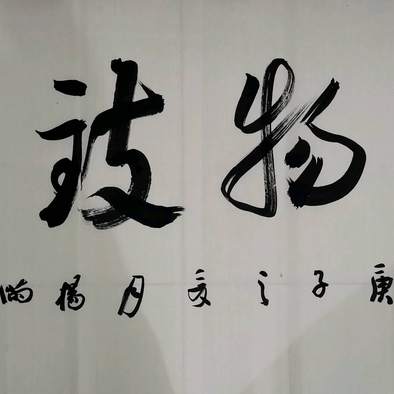 物致
庚子之夏月楊